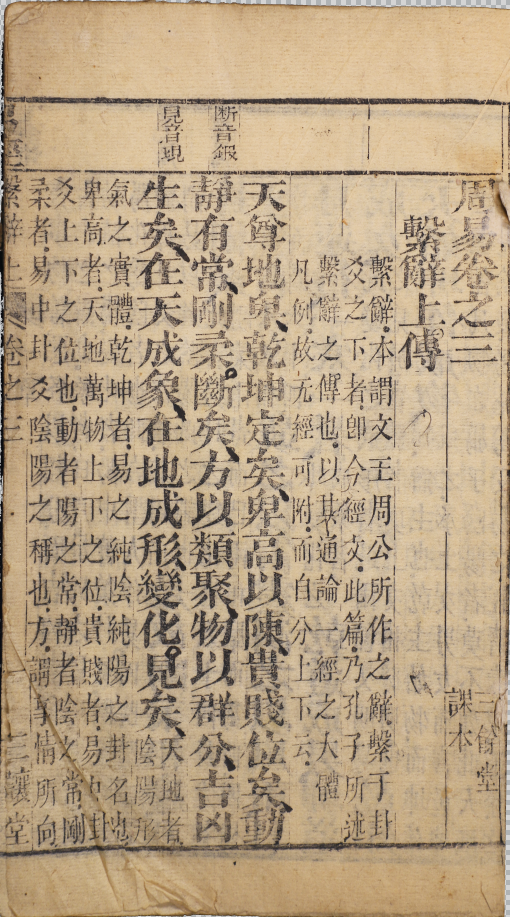 周易卷之三
三餘堂
課本
繫辭上傳
繫辭本謂文王周公所作之辭繫于卦
爻之下者即今經文此篇乃孔子所述
繫辭之傳也以其通論一經之大體
凡例故无經可附而自分上下云
天尊地卑乾坤定矣卑高以陳貴賤位矣動
断音鍜
靜有常剛柔斷矣方以類聚物以群分吉凶
見音現
生矣在天成象在地成形變化見矣天地者陰陽形
氣之實體乾坤者易之純陰純陽之卦名也
卑高者天地萬物上下之位貴賤者易中卦
爻上下之位也動者陽之常靜者陰之常剛
柔者易中卦爻陰陽之稱也方謂事情所向
易經 繫辭上 卷之三 三讓堂